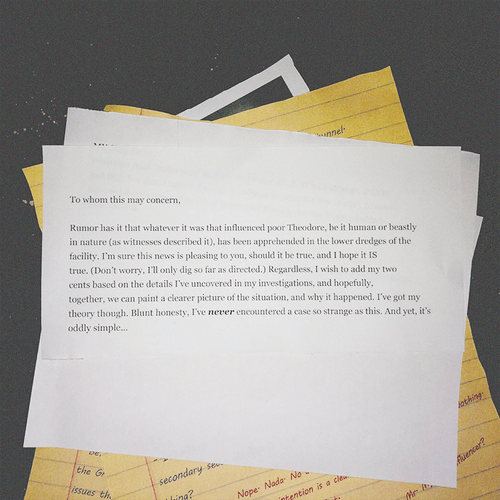 unnel.
To whom this may concern,
Rumor has it that whatever it was that influenced poor Theodore, be it human or beastly
in nature (as witnesses described it), has been apprehended in the lower dredges of the
facility. I'm sure this news is pleasing to you, should it be true, and I hope it IS
true. (Don't worry, I'll only dig so far as directed.) Regardless, I wish to add my two
cents based on the details I've uncovered in my investigations, and hopefully,
together, we can paint a clearer picture of the situation, and why it happened. I've got my
theory though. Blunt honesty, I've never encountered a case so strange as this. And yet, it's
oddly simple...
othing.
be,
the Gr
issues th
secondary se
hing?
Nope. Nada. No
ntention is a cle
fluencer?
Mr.